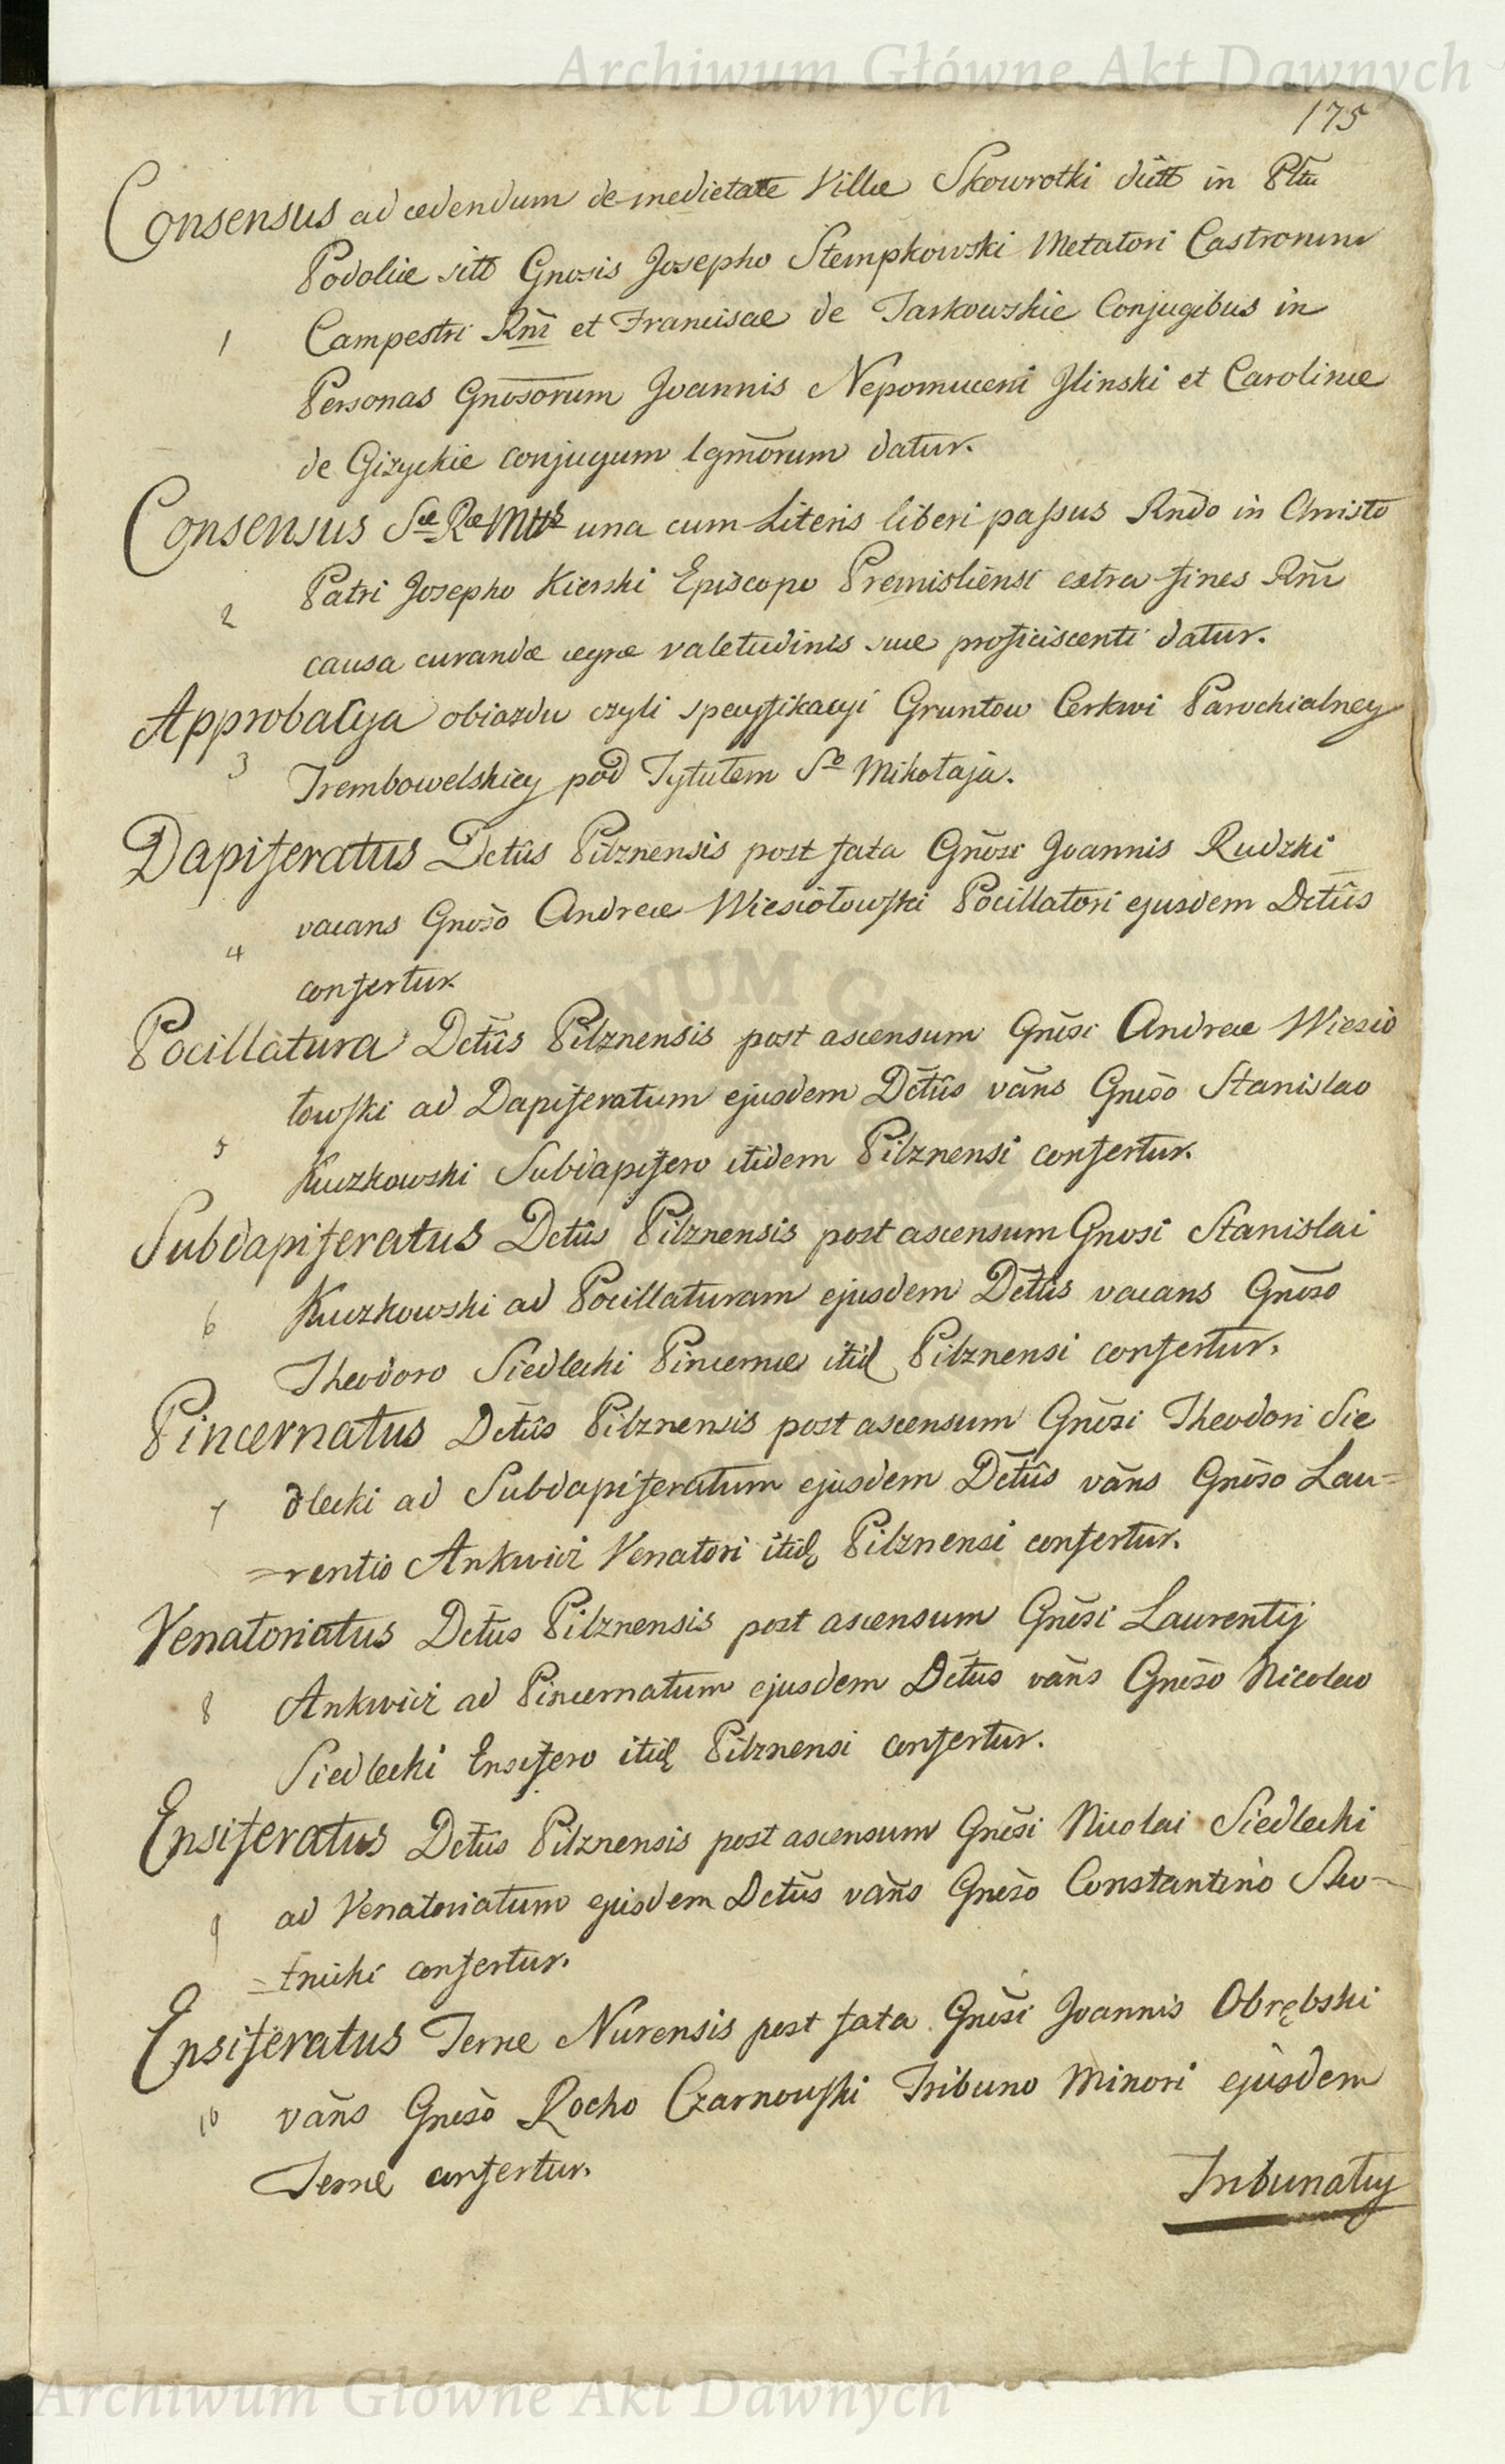 Archiwum Główne Akt Dawnych
175
Consensus ad cedendum de medietate Villæ Skowrotki dictt in Pltu
Podoliæ sitt Gnosis Josepho Stempkowski Metatori Castrorum
1 Campestri Rñi et Franciscae de Tarkowskie Conjugibus in
Personas Gnosorum Joannis Nepomuceni Jlinski et Carolinæ
de Gizyckie conjugum lgmorum datur.
Consensus Sæ Ræ Mttis una cum Literis liberi passus Rndo in Christo
2 Patri Josepho Kierski Episcopo Premisliensi extra fines Rñi
causa curandæ ægræ valetudinis suæ proficiscenti datur.
Approbacya obiazdu czyli specyfikacyi Gruntow Cerkwi Parochialney
3 Trembowelskiey pod Tytułem So Mikołaja.
Dapiferatus Dctûs Pilznensis post fata Gnosi Joannis Rudzki
4 vacans Gnoso Andreæ Wiesiołowski Pocillatori ejusdem Dctûs
confertur.
Pocillatura Dctûs Pilznensis post ascensum Gnosi Andreæ Wiesio
5 łowski ad Dapiferatum ejusdem Dctûs vans Gnoso Stanislao
Kuczkowski Subdapifero itidem Pilznensi confertur.
Subdapiferatus Dctûs Pilznensis post ascensum Gnosi Stanislai
6 Kuczkowski ad Pocillaturam ejusdem Dctûs vacans Gnoso
Theodoro Siedlecki Pincernæ itid Pilznensi confertur.
Pincernatus Dctûs Pilznensis post ascensum Gnosi Theodori Sie
7 dlecki ad Subdapiferatum ejusdem Dctûs vans Gnoso Lau=
=rentio Ankwicz Venatori itid Pilznensi confertur.
Venatoriatus Dctus Pilznensis post ascensum Gnosi Laurentij
8 Ankwicz ad Pincernatum ejusdem Dctus vans Gnoso Nicolao
Siedlecki Ensifero itid Pilznensi confertur.
Ensiferatus Dctûs Pilznensis post ascensum Gnosi Nicolai Siedlecki
9 ad Venatoriatum ejusdem Dctus vans Gnoso Constantino Słu-
=tnicki confertur.
Ensiferatus Terræ Nurensis post fata Gnosi Joannis Obrębski
10 vans Gnoso Rocho Czarnowski Tribuno Minori ejusdem
Terræ confertur.
Tribunatus
Archiwum Główne Akt Dawnych